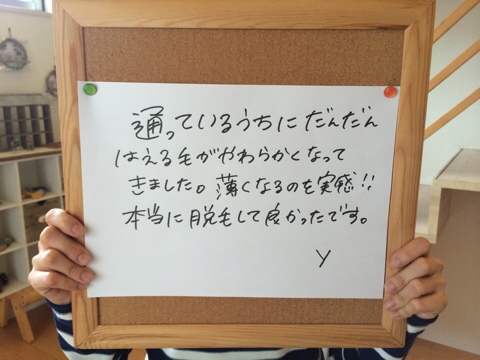 通っているうちにだんだん
はえる毛がやわらかくなって
きました。薄くなるのを実感!!
本当に脱毛して良かったです。
Y